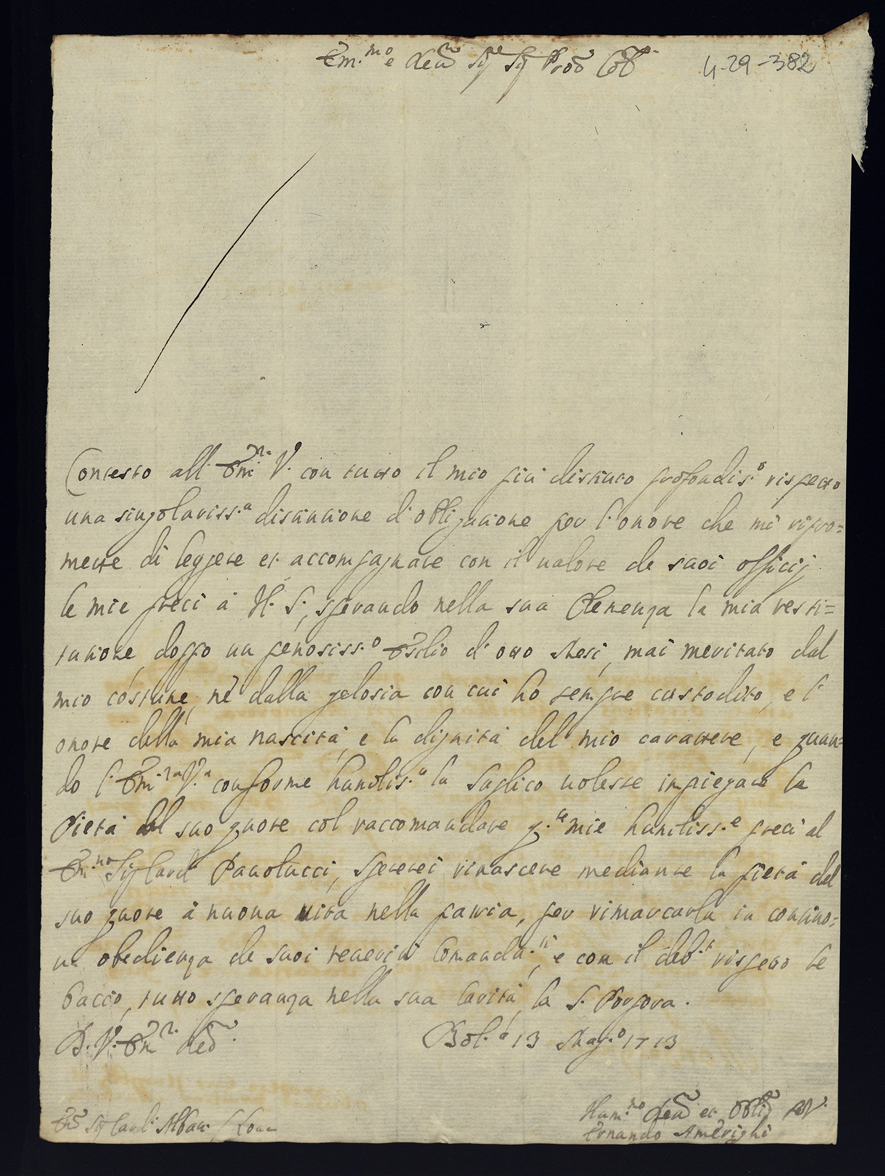 Em.mo e Rev. Sig. Sig. Prod. Col.
4-29-382
Contesto all' Em.za V. con tutto il mio più distinto profondis.o rispetto
una singolariss.a distinzione d'obligazione per l'onore che mi ripro=
mette di leggere et accompagnare con il valore de suoi officij
le mie preci à N. S., sperando nella sua Clemenza la mia resti=
tuzione, doppo un penosiss.o Esilio d'otto Mesi, mai meritato dal
mio costume, nè dalla gelosia con cui hò sempre custodito, e l'
onore della mia nascità, e la dignità del mio carattere, e quan=
do l'Em.za V.a conforme humilis.e la suplico volesse impiegare la
Pietà del suo quore col raccomandare q.te mie humiliss.e preci al
Em.mo Sig. Card. Paulucci, spererei rinascere mediante la pietà del
suo quore à nuova vita nella patria, per rimarcarla in continu=
a obedienza de suoi reveriti Comanda.ti, e con il deb.o rispetto le
baccio, tutto speranza nella sua Carità, la S. Porpora.
D. V. Em. Red.
Bol.a 13 Mag.o 1713
Hum.mo Dev. et Obblig.
Em. Sig. Card. Alban. Roma
Ernando Amerighi